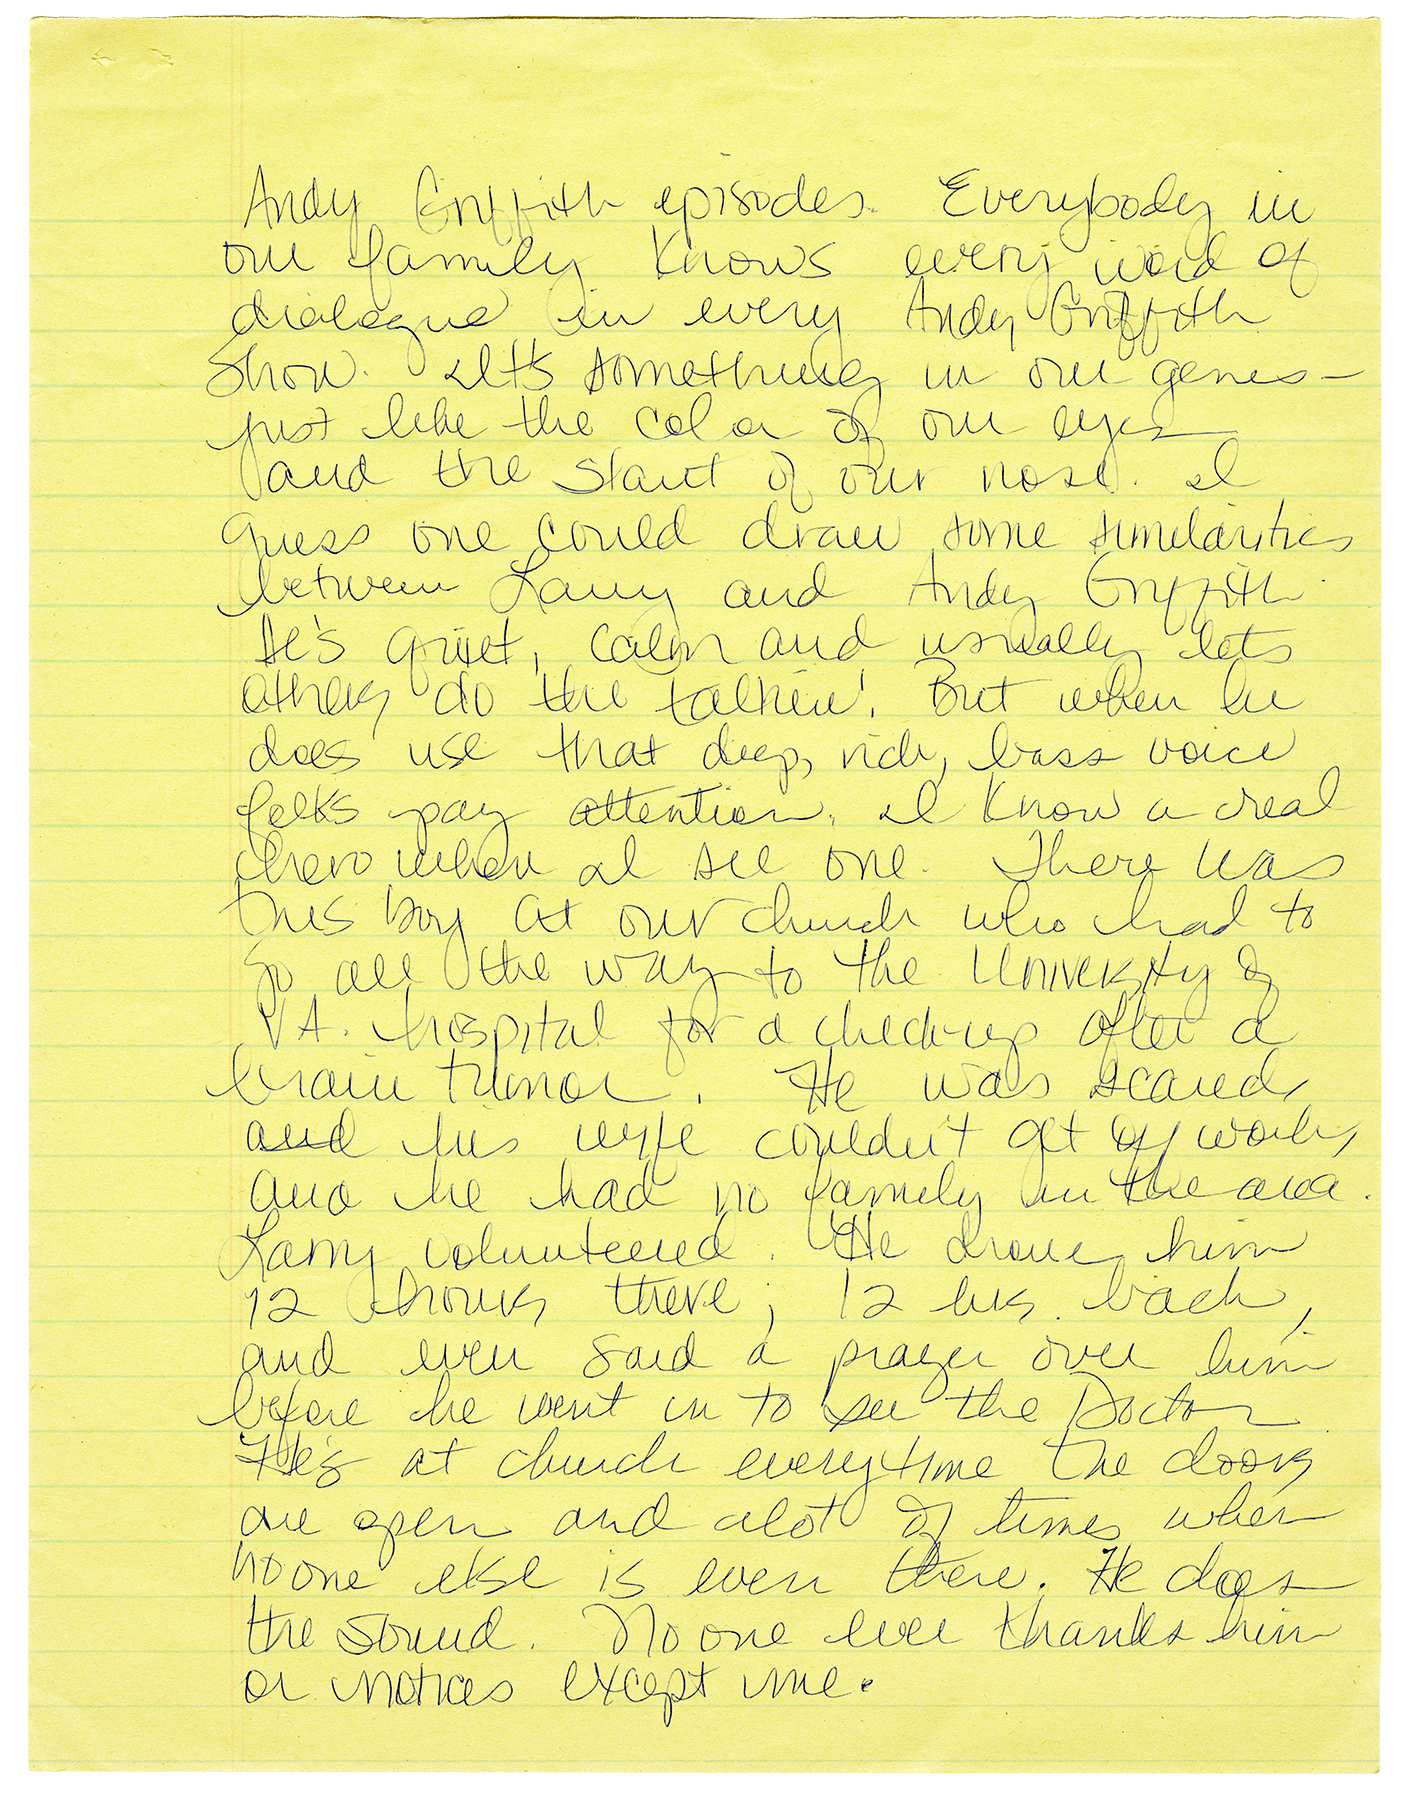 Andy Griffith episodes. Everybody in
our family knows every word of
dialogue in every Andy Griffith
Show. It's something in our genes -
just like the color of our eyes
and the slant of our nose. I
guess one could draw some similarities
between Larry and Andy Griffith.
He's quiet, calm and usually lets
others do the talkin'. But when he
does use that deep, rich, bass voice
folks pay attention. I know a real
hero when I see one. There was
this boy at our church who had to
go all the way to the University of
VA. hospital for a check-up after a
brain tumor. He was scared,
and his wife couldn't get off work,
and he had no family in the area.
Larry volunteered. He drove him
12 hours there; 12 hrs. back,
and even said a prayer over him
before he went in to see the Doctor.
He's at church everytime the doors
are open and alot of times when
no one else is even there. He does
the sound. No one ever thanks him
or notices except me.